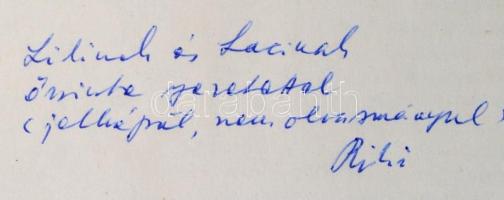 Lilinek és Lacinak
őszinte szeretettel
(jelképül, nem olvasmányul)